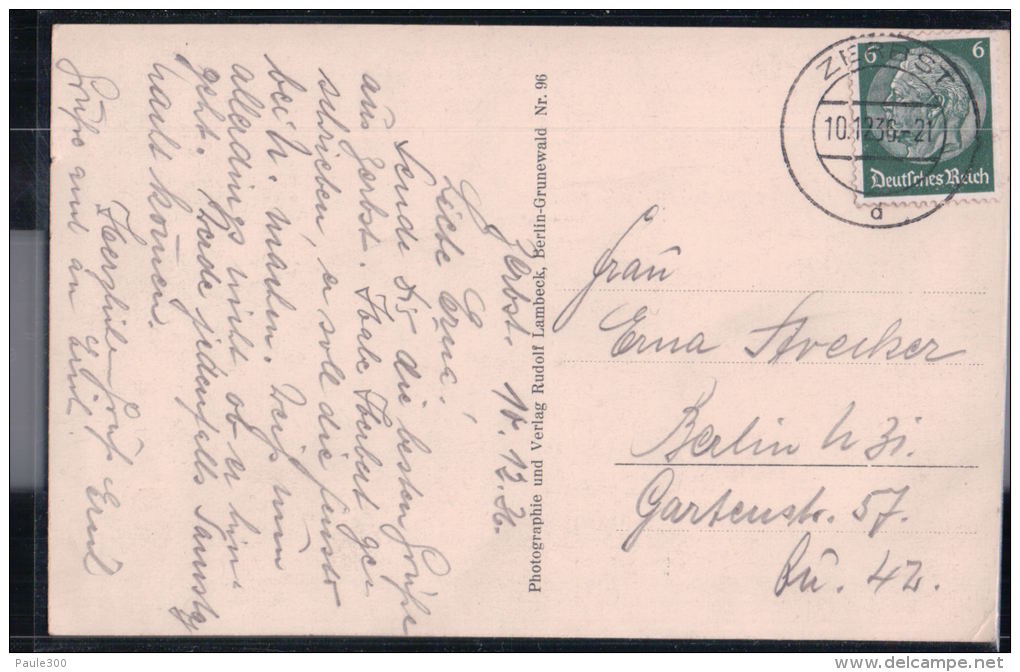 Zerbst. 10.12.36.
Liebe Erna!
Sende Dir die besten Grüße
aus Zerbst. Habe Herbert ge-
schrieben, er soll die Fenster
bei h. machen. Weiß nun
allerdings nicht ob er hin-
geht. Werde jedenfalls Samstag
nacht kommen.
Herzliche Grüße Ernst
Grüße auch an
Photographie und Verlag Rudolf Lambeck, Berlin-Grunewald Nr. 96
ZERBST
10.12.36.-21
a
6 6
Deutsches Reich
Frau
Erna Strecker
Berlin
Gartenstr. 57.
bu. 42.
Paule300
delcampe.net